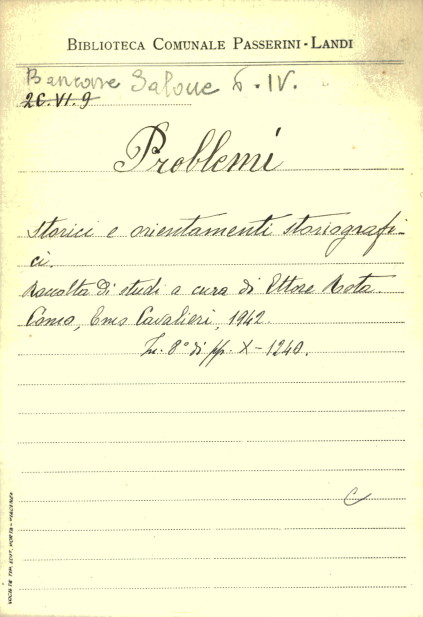 BIBLIOTECA COMUNALE PASSERINI-LANDI
Bancone Salone 6. IV.
26.VI.9
Problemi
storici e orientamenti storiografi-
ci.
Raccolta di studi a cura di Ettore Rota.
Como, Emo Cavalleri, 1942.
In 8° di pp. X-1240.
C